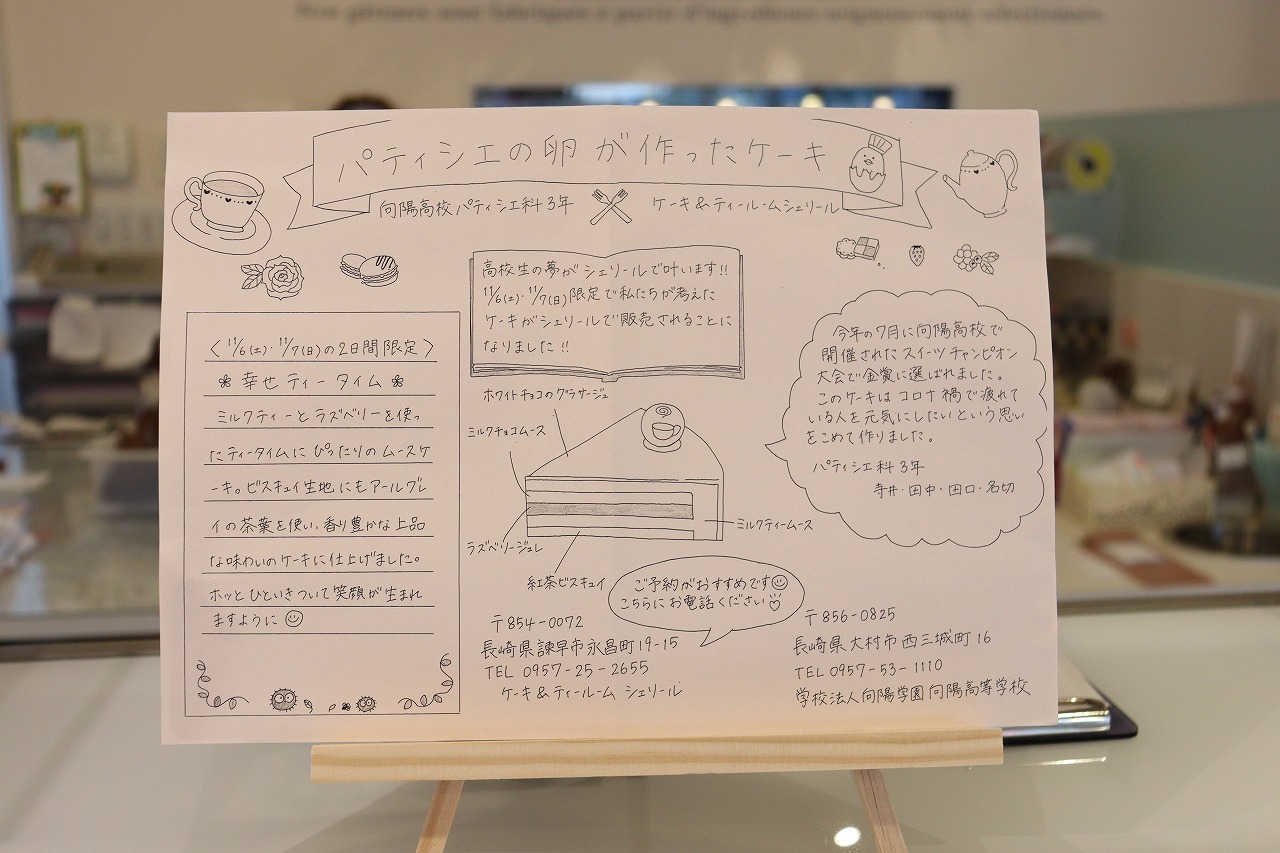 Nos gâteaux sont fabriqués à partir d'ingrédients soigneusement sélectionnés.
パティシエの卵が作ったケーキ
向陽高校パティシエ科3年
ケーキ&ティールームシェリール
高校生の夢がシェリールで叶います!!
11/6(土)・11/7(日)限定で私たちが考えた
ケーキがシェリールで販売されることに
なりました!!
〈11/6(土)・11/7(日)の2日間限定〉
幸せティータイム
ミルクティーとラズベリーを使っ
たティータイムにぴったりのムースケ
ーキ。ビスキュイ生地にもアールグレ
イの茶葉を使い、香り豊かな上品
な味わいのケーキに仕上げました。
ホッとひといきついて笑顔が生まれ
ますように
ホワイトチョコのグラサージュ
ミルクチョコムース
ラズベリージュレ
紅茶ビスキュイ
ミルクティームース
今年の7月に向陽高校で
開催されたスイーツチャンピオン
大会で金賞に選ばれました。
このケーキはコロナ禍で疲れて
いる人を元気にしたいという思い
をこめて作りました。
パティシエ科3年
寺井・田中・田口・名切
ご予約がおすすめです
こちらにお電話ください
〒854-0072
長崎県諫早市永昌町19-15
TEL 0957-25-2655
ケーキ&ティールーム シェリール
〒856-0825
長崎県大村市西三城町16
TEL 0957-53-1110
学校法人向陽学園向陽高等学校